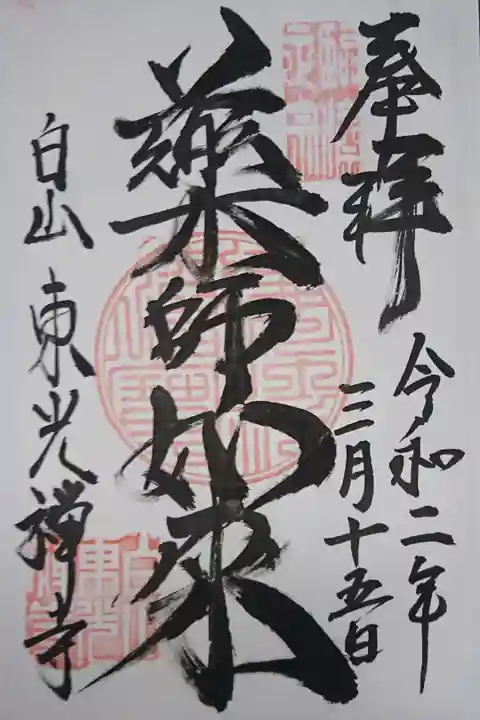 奉拝
令和二年
三月十五日
薬師如来
白山 東光禅寺